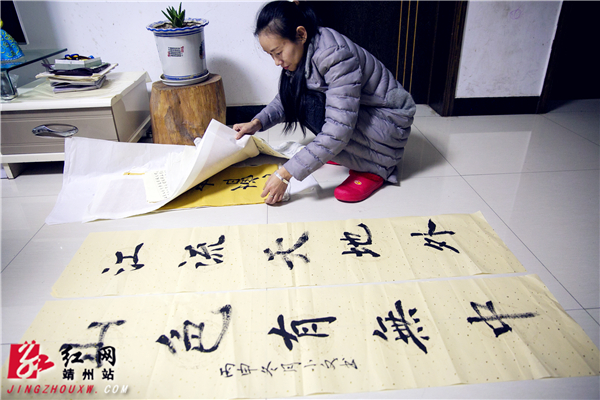 江流天地外
山色有無中
丙申冬
红网
靖州站
JINGZHOUXW.COM